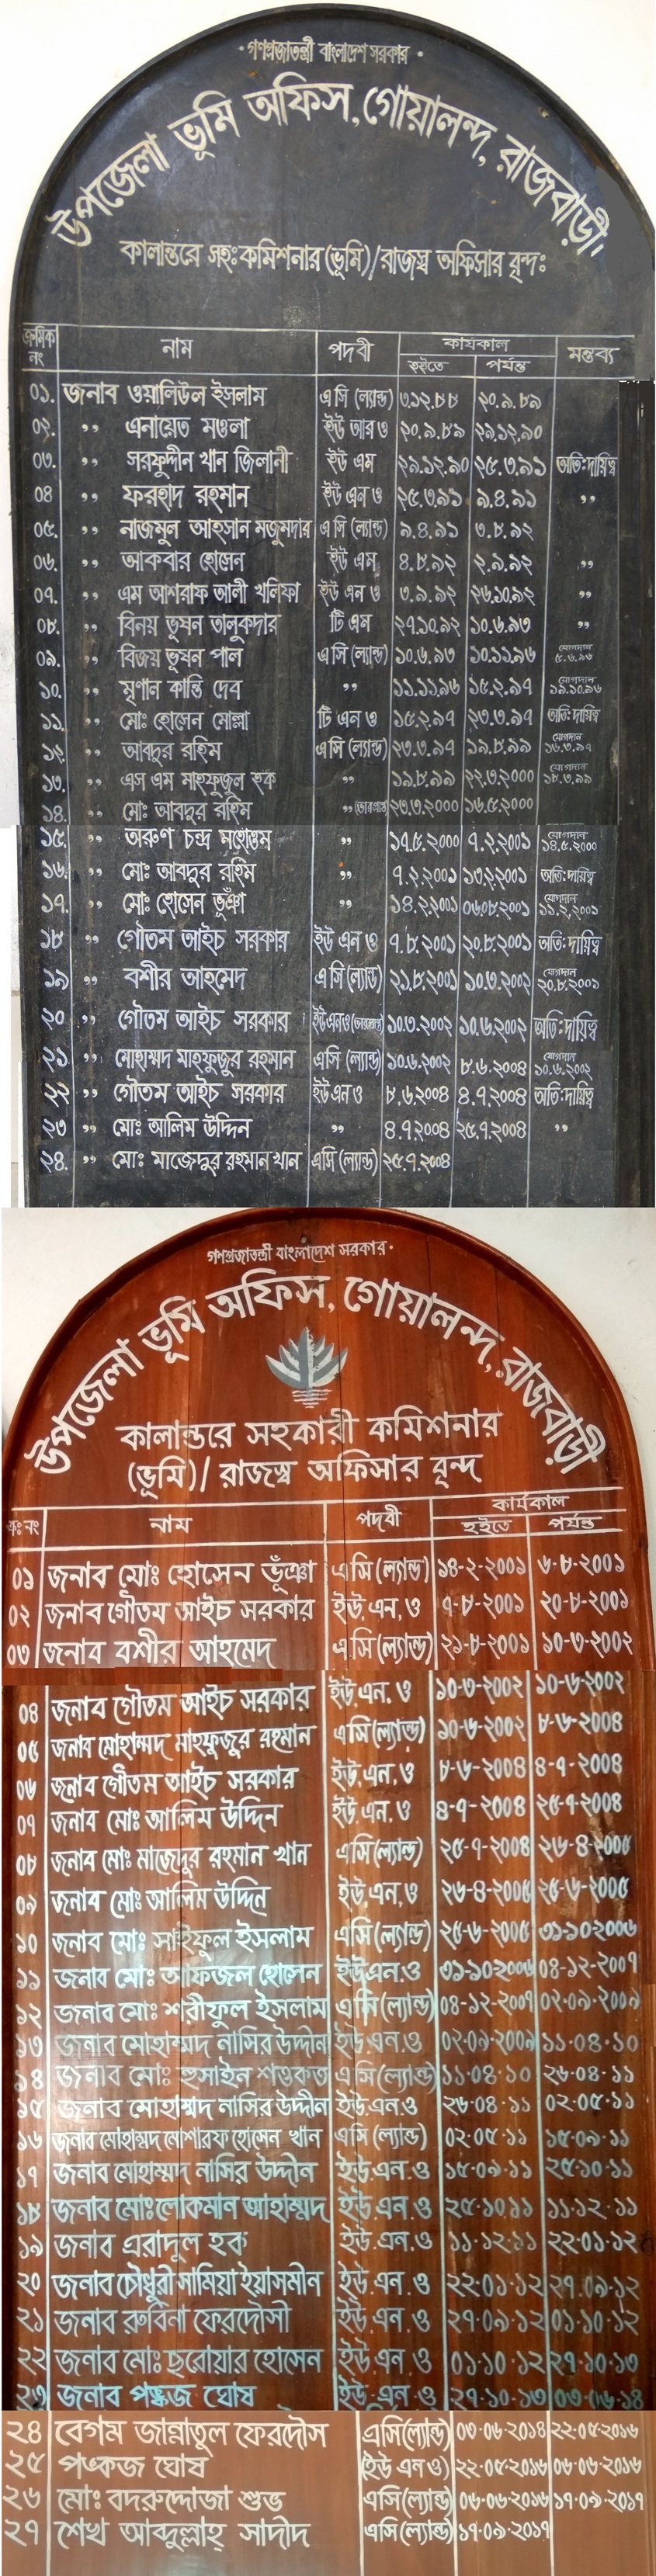 গণপ্রজাতন্ত্রী বাংলাদেশ সরকার
উপজেলা ভূমি অফিস, গোয়ালন্দ, রাজবাড়ী।
কালান্তরে সহঃ কমিশনার (ভূমি)/রাজস্ব অফিসার বৃন্দঃ
ক্রমিক নং নাম পদবী কার্যকাল মন্তব্য
হইতে পর্যন্ত
০১. জনাব ওয়ালিউল ইসলাম এ সি (ল্যান্ড) ৩.১২.৮৮ ২০.৯.৮৯
০২. ,, এনায়েত মওলা ইউ আর ও ২০.৯.৮৯ ২৯.১২.৯০
০৩. ,, সরফুদ্দীন খান জিলানী ইউ এম ২৯.১২.৯০ ২৫.৩.৯১ অতি:দায়িত্ব
০৪ ,, ফরহাদ রহমান ইউ এন ও ২৫.৩.৯১ ৯.৪.৯১ ,,
০৫. ,, নাজমুল আহসান মজুমদার এ সি (ল্যান্ড) ৯.৪.৯১ ৩.৮.৯২
০৬. ,, আকবার হোসেন ইউ এম ৪.৮.৯২ ২.৯.৯২ ,,
০৭. ,, এম আশরাফ আলী খলিফা ইউ এন ও ৩.৯.৯২ ২৬.১০.৯২ ,,
০৮. ,, বিনয় ভূষন তালুকদার টি এম ২৭.১০.৯২ ১০.৬.৯৩ ,,
০৯. ,, বিজয় ভূষন পাল এ সি (ল্যান্ড) ১০.৬.৯৩ ১০.১১.৯৬ যোগদান ৫.৬.৯৩
১০. ,, মৃণান কান্তি দেব ,, ১১.১১.৯৬ ১৫.২.৯৭ যোগদান ১৯.১০.৯৬
১১. ,, মোঃ হোসেন মোল্লা টি এন ও ১৫.২.৯৭ ২৩.৩.৯৭ অতি:দায়িত্ব
১২ ,, আবদুর রহিম এ সি (ল্যান্ড) ২৩.৩.৯৭ ১৯.৮.৯৯ যোগদান ১৬.৩.৯৭
১৩. ,, এস এম মাহফুজুল হক ,, ১৯.৮.৯৯ ২২.৩.২০০০ যোগদান ১৮.৩.৯৯
১৪. ,, মোঃ আবদুর রহিম ,, (ভারপ্রাপ্ত) ২৩.৩.২০০০ ১৬.৫.২০০০
১৫. ,, অরুণ চন্দ্র মহোত্তম ,, ১৭.৫.২০০০ ৭.২.২০০১ যোগদান ১৪.৫.২০০০
১৬. ,, মোঃ আবদুর রহিম ,, ৭.২.২০০১ ১৩.২.২০০১ অতি:দায়িত্ব
১৭. ,, মোঃ হোসেন ভূঁঞা ,, ১৪.২.২০০১ ০৬.০৮.২০০১ যোগদান ১১.২.২০০১
১৮ ,, গৌতম আইচ সরকার ইউ এন ও ৭.৮.২০০১ ২০.৮.২০০১ অতি:দায়িত্ব
১৯ ,, বশীর আহমেদ এ সি (ল্যান্ড) ২১.৮.২০০১ ১০.৩.২০০২ যোগদান ২০.৮.২০০১
২০ ,, গৌতম আইচ সরকার ইউ এন ও (ভারপ্রাপ্ত) ১০.৩.২০০২ ১০.৬.২০০২ অতি:দায়িত্ব
২১ ,, মোহাম্মদ মাহফুজুর রহমান এসি (ল্যান্ড) ১০.৬.২০০২ ৮.৬.২০০৪ যোগদান ১০.৬.২০০২
২২ ,, গৌতম আইচ সরকার ইউ এন ও ৮.৬.২০০৪ ৪.৭.২০০৪ অতি:দায়িত্ব
২৩ ,, মোঃ আলিম উদ্দিন ,, ৪.৭.২০০৪ ২৫.৭.২০০৪ ,,
২৪. ,, মোঃ মাজেদুর রহমান খান এসি (ল্যান্ড) ২৫.৭.২০০৪
গণপ্রজাতন্ত্রী বাংলাদেশ সরকার
উপজেলা ভূমি অফিস, গোয়ালন্দ, রাজবাড়ী
কালান্তরে সহকারী কমিশনার
(ভূমি)/ রাজস্ব অফিসার বৃন্দ
ক্রঃ নং নাম পদবী কার্যকাল
হইতে পর্যন্ত
০১ জনাব মোঃ হোসেন ভূঁঞা এ সি (ল্যান্ড) ১৪-২-২০০১ ৬-৮-২০০১
০২ জনাব গৌতম আইচ সরকার ইউ.এন.ও ৭-৮-২০০১ ২০-৮-২০০১
০৩ জনাব বশীর আহমেদ এ সি (ল্যান্ড) ২১-৮-২০০১ ১০-৩-২০০২
০৪ জনাব গৌতম আইচ সরকার ইউ.এন.ও ১০-৩-২০০২ ১০-৬-২০০২
০৫ জনাব মোহাম্মদ মাহফুজুর রহমান এসি (ল্যান্ড) ১০-৬-২০০২ ৮-৬-২০০৪
০৬ জনাব গৌতম আইচ সরকার ইউ.এন.ও ৮-৬-২০০৪ ৪-৭-২০০৪
০৭ জনাব মোঃ আলিম উদ্দিন ইউ.এন.ও ৪-৭-২০০৪ ২৫-৭-২০০৪
০৮ জনাব মোঃ মাজেদুর রহমান খান এসি (ল্যান্ড) ২৫-৭-২০০৪ ২৬-৪-২০০৫
০৯ জনাব মোঃ আলিম উদ্দিন ইউ.এন.ও ২৬-৪-২০০৫ ২৫-৬-২০০৫
১০ জনাব মোঃ সাইফুল ইসলাম এসি (ল্যান্ড) ২৫-৬-২০০৫ ৩১-১০-২০০৬
১১ জনাব মোঃ আফজল হোসেন ইউ.এন.ও ৩১-১০-২০০৬ ০৪-১২-২০০৭
১২ জনাব মোঃ শরীফুল ইসলাম এ সি (ল্যান্ড) ০৪-১২-২০০৭ ০২-০৯-২০০৯
১৩ জনাব মোহাম্মদ নাসির উদ্দীন ইউ.এন.ও ০২-০৯-২০০৯ ১১-০৪-১০
১৪ জনাব মোঃ হুসাইন শওকত এ সি (ল্যান্ড) ১১-০৪-১০ ২৬-০৪-১১
১৫ জনাব মোহাম্মদ নাসির উদ্দীন ইউ.এন.ও ২৬-০৪-১১ ০২-০৫-১১
১৬ জনাব মোহাম্মদ মোশারফ হোসেন খান এ সি (ল্যান্ড) ০২-০৫-১১ ১৫-০৯-১১
১৭ জনাব মোহাম্মদ নাসির উদ্দীন ইউ.এন.ও ১৫-০৯-১১ ২৫-১০-১১
১৮ জনাব মোঃ লোকমান আহাম্মদ ইউ.এন.ও ২৫-১০-১১ ১১-১২-১১
১৯ জনাব এরাদুল হক ইউ.এন.ও ১১-১২-১১ ২২-০১-১২
২০ জনাব চৌধুরী সামিয়া ইয়াসমীন ইউ.এন.ও ২২-০১-১২ ২৭-০৯-১২
২১ জনাব রুবিনা ফেরদৌসী ইউ.এন.ও ২৭-০৯-১২ ০১-১০-১২
২২ জনাব মোঃ ছরোয়ার হোসেন ইউ.এন.ও ০১-১০-১২ ২৭-১০-১৩
২৩ জনাব পঙ্কজ ঘোষ ইউ.এন.ও ২৭-১০-১৩ ০৩-০৬-১৪
২৪ বেগম জান্নাতুল ফেরদৌস এসি(ল্যান্ড) ০৩-০৬-২০১৪ ২২-০৫-২০১৬
২৫ পঙ্কজ ঘোষ (ইউ এন ও) ২২-০৫-২০১৬ ০৬-০৬-২০১৬
২৬ মোঃ বদরুদ্দোজা শুভ এসি(ল্যান্ড) ০৬-০৬-২০১৬ ১৭-০৯-২০১৭
২৭ শেখ আব্দুল্লাহ্ সাদীদ এসি(ল্যান্ড) ১৭-০৯-২০১৭